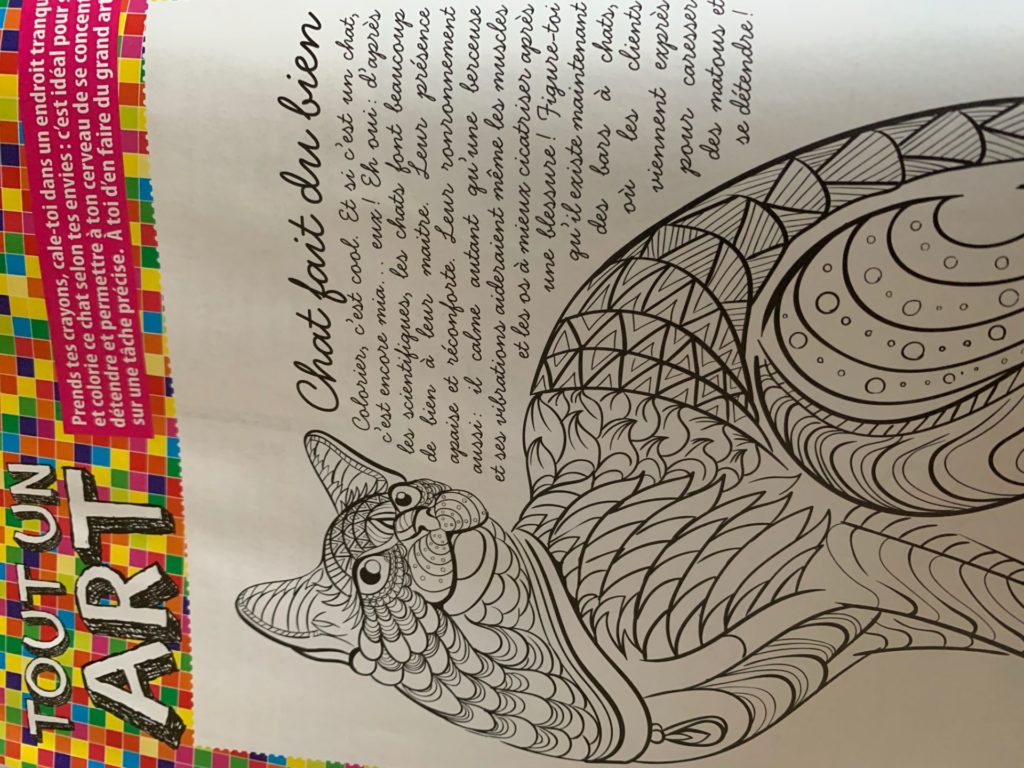 TOUT UN
ART
Prends tes crayons, cale-toi dans un endroit tranqu
et colorie ce chat selon tes envies : c'est idéal pour s
détendre et permettre à ton cerveau de se concent
sur une tâche précise. À toi d'en faire du grand art
Chat fait du bien
Colorier, c'est cool. Et si c'est un chat,
c'est encore mia... eux! Eh oui : d'après
les scientifiques, les chats font beaucoup
de bien à leur maître. Leur présence
apaise et réconforte. Leur ronronnement
aussi : il calme autant qu'une berceuse
et ses vibrations aideraient même les muscles
et les os à mieux cicatriser après
une blessure! Figure-toi
qu'il existe maintenant
des bars à chats,
où les clients
viennent exprès
pour caresser
des matous et
se détendre!